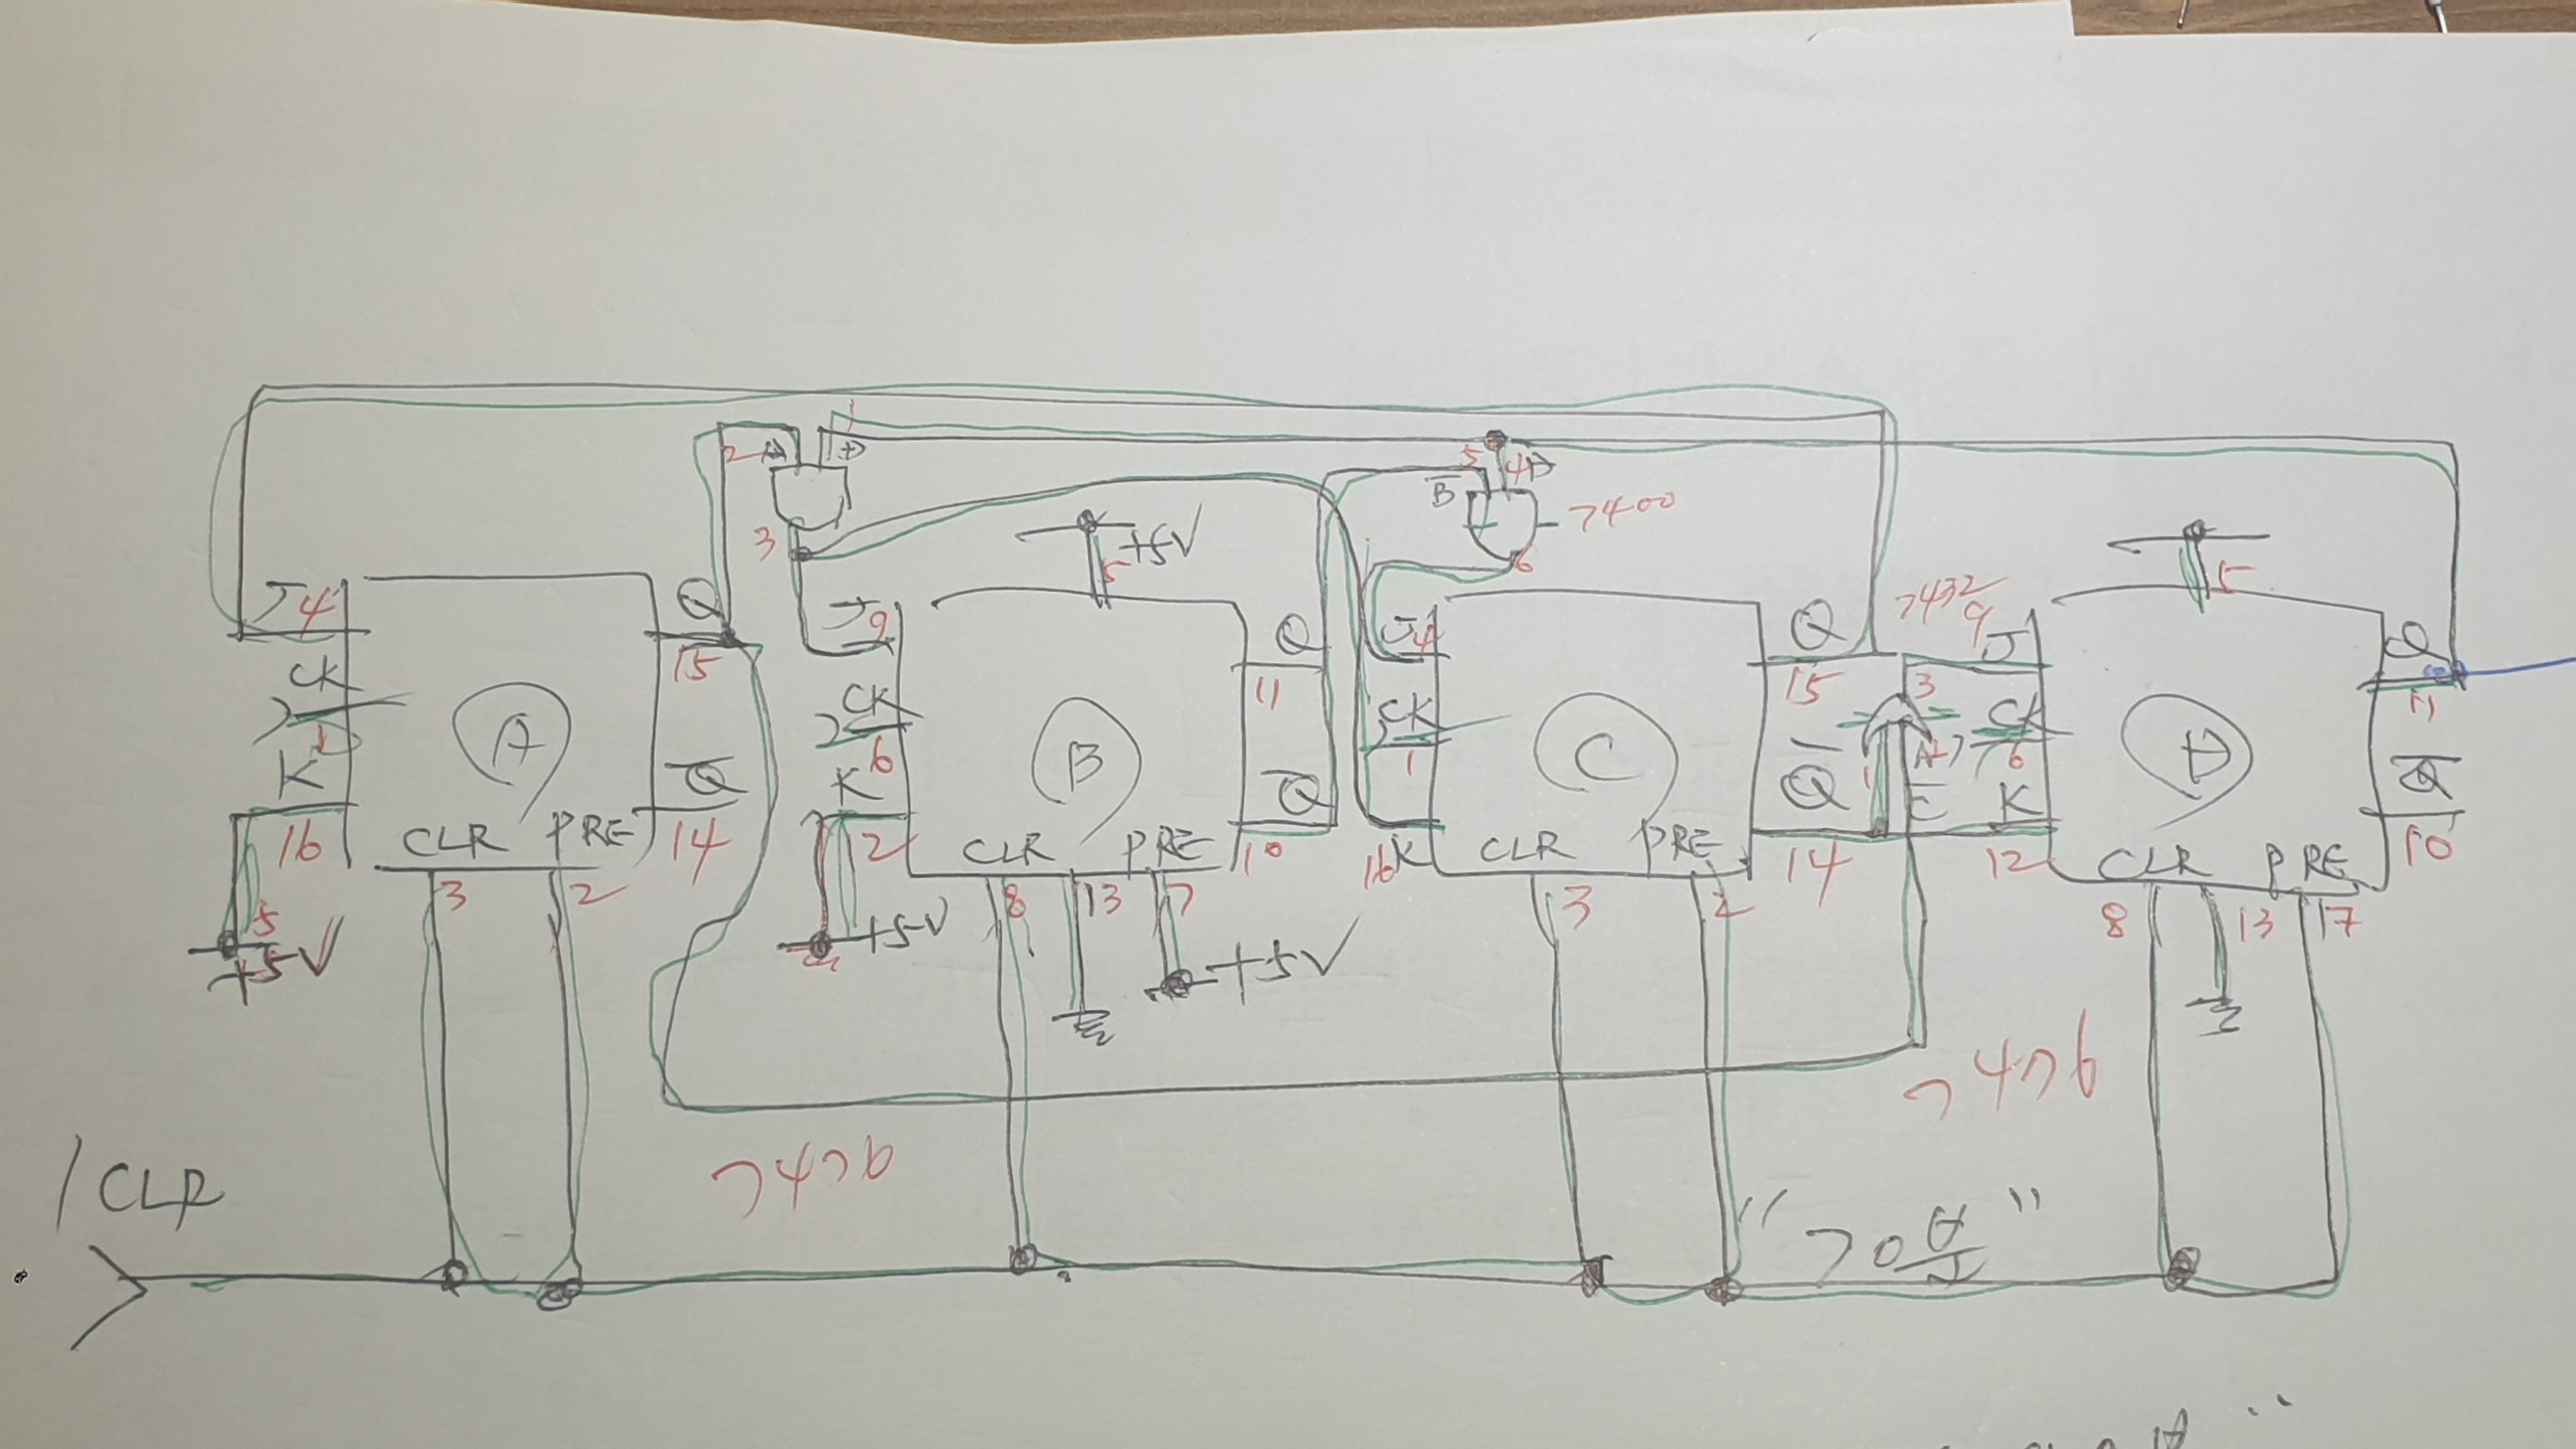 1
2 A D
5 4 D
B
7400
3
+5V
5
6
5
J 4
Q
15
J 9
Q
11
J 4
Q
15
7432
9
J
Q
11
CK
1
A
CK
6
B
CK
1
C
3
CK
6
D
K
16
Q
14
K
12
Q
10
K
16
Q
14
1
A
C
K
12
Q
10
CLR PRE
CLR PRE
CLR PRE
CLR PRE
3 2
8 13 7
3 2
8 13 17
5
+5V
+5V
+5V
7476
7476
/CLR
"구오부"